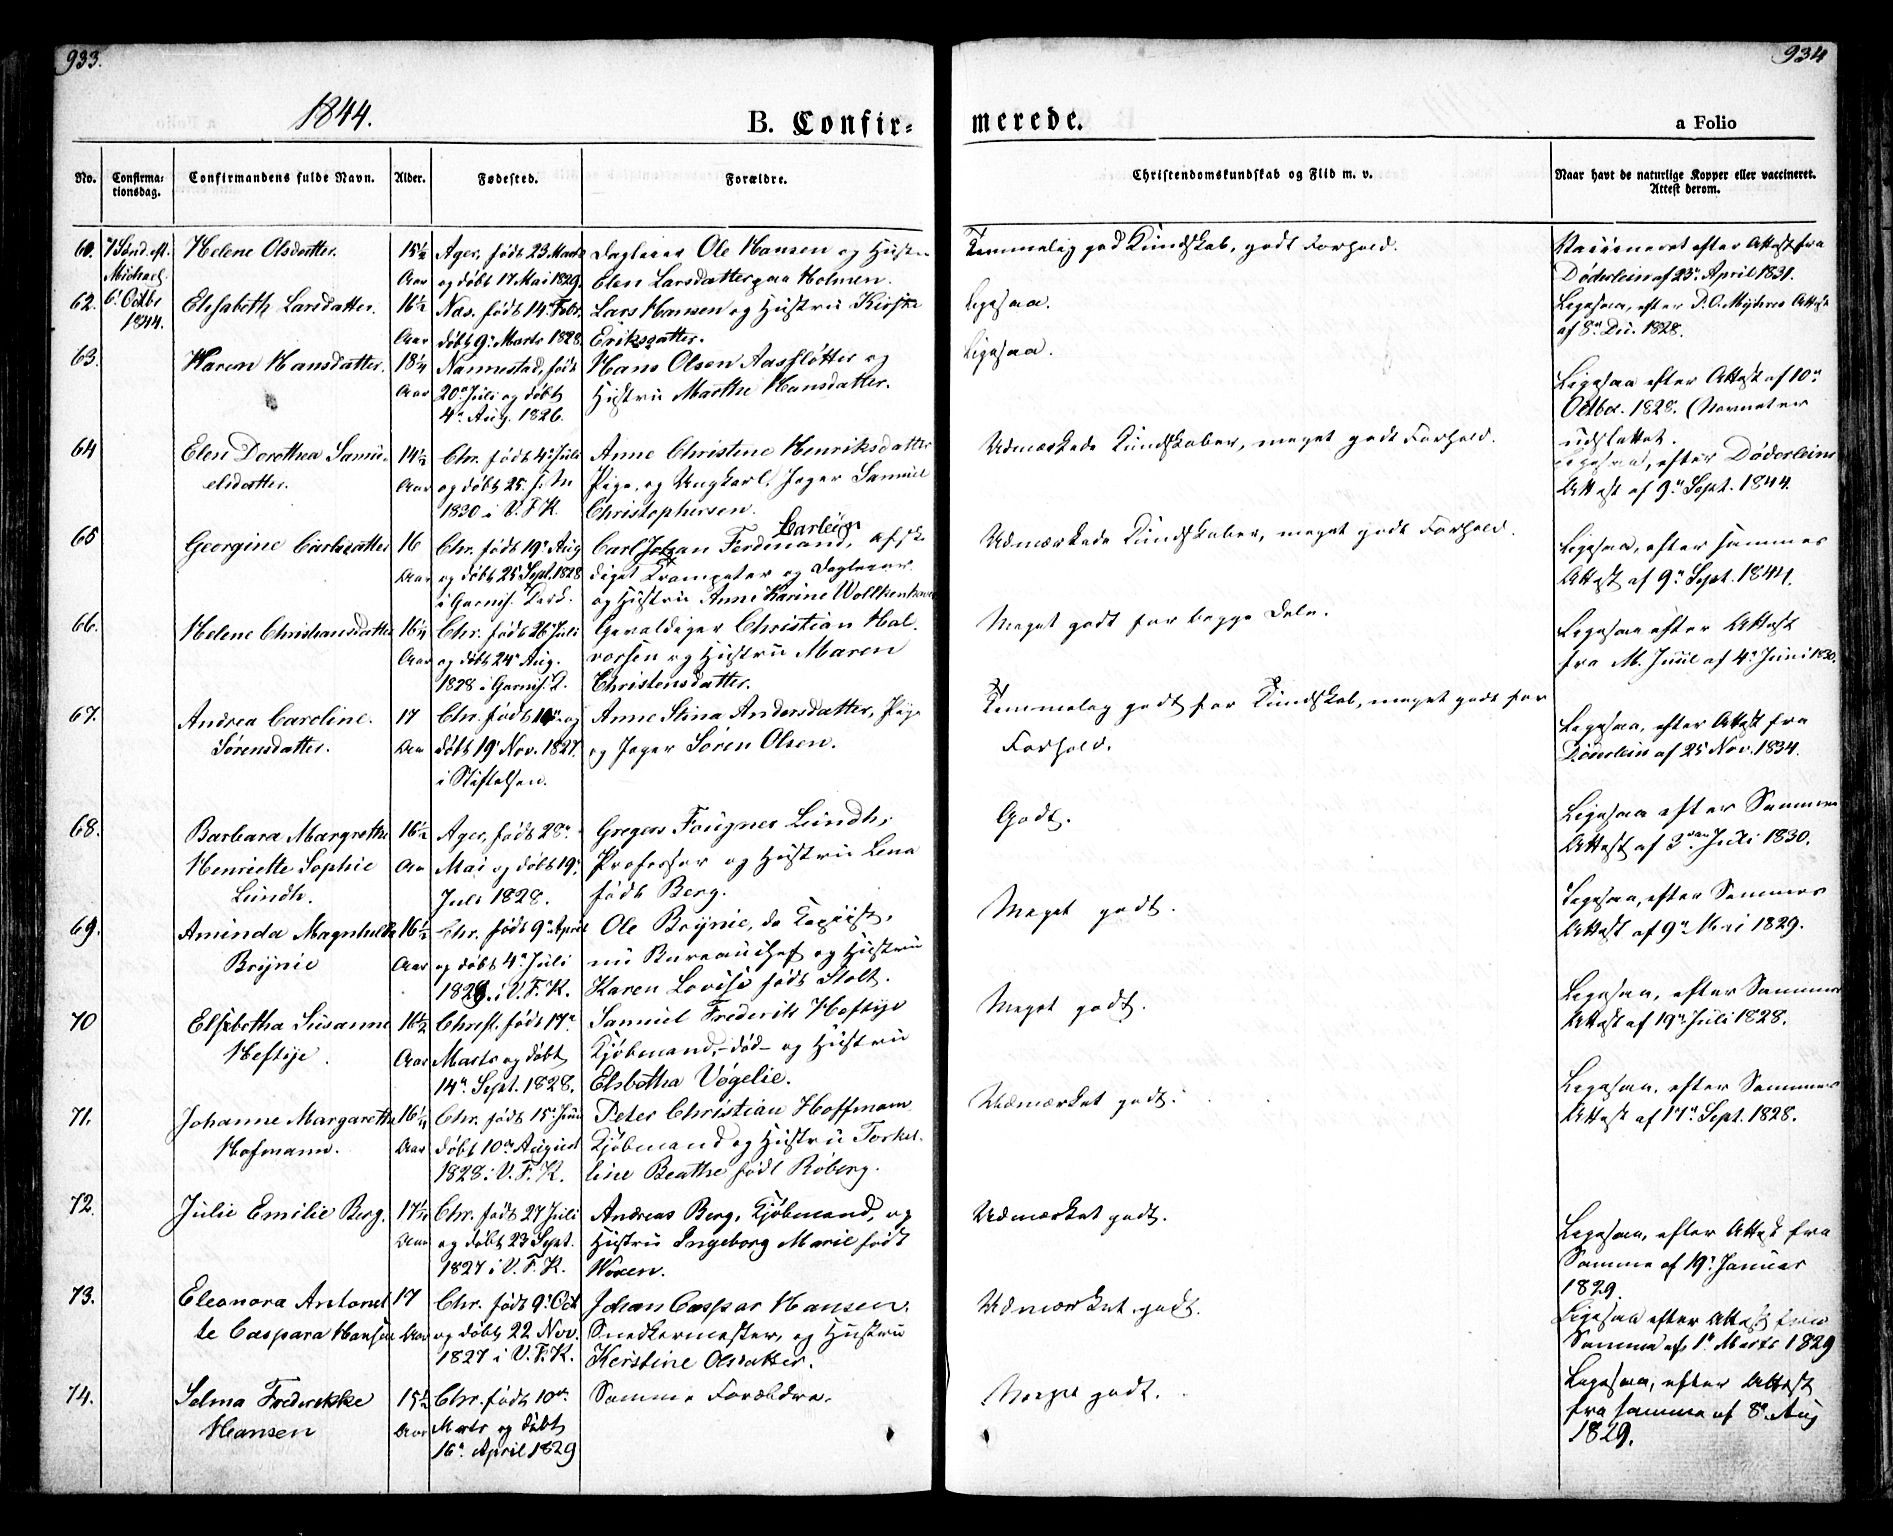 933.
934
1844.
B. Confir-
merede.
a Folio
No.
Confirma-
tionsdag.
Confirmandens fulde Navn.
Alder.
Fødested.
Forældre.
Christendomskundskab og Flid m. v.
Naar havt de naturlige Kopper eller vaccineret.
Attest derom.
7 Sønd. eft.
Michael.
6 Octbr
1844.
Helene Olsdatter.
15½
Aar
Ager, født 23 Marts
og døbt 17 Mai 1829.
Dagleier Ole Hansen og Hustru
Elen Larsdatter paa Holmen.
Temmelig god Kundskab, godt Forhold.
Vaccineret efter Attest fra
Døderlein af 23 April 1831.
62.
Elisabeth Larsdatter.
16½
Aar
Næs. født 14 Febr.
døbt 9 Marts 1828.
Lars Hansen og Hustru Kirstie
Eriksdatter.
Ligesaa.
Ligesaa, efter Attest
af 8 Dec. 1828.
63.
Karen Hansdatter.
18¼
Aar
Nannestad, født
20 Juli og døbt
4 Aug. 1826.
Hans Olsen Aasslötter og
Hustru Marthe Hansdatter.
Ligesaa.
Ligesaa efter Attest af 10
Octbr. 1828. (Navnet er
udslettet.
64
Elen Dorothea Samu-
elsdatter.
14½
Aar
Chr. født 4 Juli
og døbt 25.
1830 i V. F. K.
Anne Christine Henriksdatter
Pige, og Ungkarl, Jæger Samuel
Christophersen.
Udmærkede Kundskaber, meget godt Forhold.
Ligesaa, efter Døderleins
Attest af 9 Sept. 1844.
65
Georgine Carlsdatter
16
Aar
Chr. født 19 Aug
og døbt 25 Sept. 1828
i Garnis.
Carl Johan Ferdinand Carleus, afske-
diget Trompeter og Dagleier
og Hustru Anne Karine
Udmærkede Kundskaber, meget godt Forhold.
Ligesaa, efter sammes
Attest af 9 Sept. 1844.
66.
Helene Christiansdatter
16¼
Aar
Chr. født 26 Juli
og døbt 24 Aug.
1828 i Garnis.
Gevaldiger Christian Hal-
vorsen og Hustru Maren
Christensdatter.
Meget godt for begge Dele.
Ligesaa efter Attest
fra M. Juul af 4 Juni 1830.
67.
Andrea Caroline
Sørensdatter.
17
Aar
Chr. født og
døbt 19 Nov. 1827.
i Stiftelsen.
Anne Stina Andersdatter, Pige
og Jæger Søren Olsen.
Temmelig godt for Kundskab, meget godt for
Forhold.
Ligesaa, efter Attest fra
Døderlein af 25 Nov. 1834.
68.
Barbara Margrethe
Henriette Sophie
Lundh.
16½
Aar
Ager, født 28
Mai og døbt 19
Juli 1828.
Gregers Fougner Lundh,
Professor og Hustru Lena
født Berg.
Godt.
Ligesaa efter Samme
Attest af 3 Juli 1830.
69.
Aminda Magnhilda
Brynie
16½
Aar
Chr. født 9 April
og døbt 4 Juli
1828. i V. F. K.
Ole Brynie, da Copiist,
nu Bureauchef og Hustru
Karen Lovise født Stolt.
Meget godt.
Ligesaa, efter Sammes
Attest af 9 Mai 1829.
70
Elsbetha Susanne
Heftye.
16½
Aar
Christ. født 17
Marts og døbt
14 Sept. 1828.
Samuel Frederik Heftye
Kjøbmand, - død - og Hustru
Elsbetha Vøgelie.
Meget godt.
Ligesaa, efter Sammes
Attest af 19 Juli 1828.
71.
Johanne Margarethe
Hofmann.
16¼
Aar
Chr. født 15 Juni
døbt 10 August
1828 i V. F. K.
Peter Christian Hoffmann
Kjøbmand og Hustru Torkel-
line Beathe født Roberg.
Udmærket godt.
Ligesaa, efter Sammes
Attest af 17 Sept. 1828.
72.
Julie Emilie Berg.
17¼
Aar
Chr. født 27 Juli
og døbt 23 Sept.
1827 i V. F. K.
Andreas Berg, Kjøbmand, og
Hustru Ingeborg Marie født
Woxen.
Udmærket godt.
Ligesaa, efter Attest fra
Samme af 19 Januar
1829.
73.
Eleonora Antonet-
te Caspara Hansen
17
Aar
Chr. født 9 Oct
og døbt 22 Nov.
1827 i V. F. K.
Johan Caspar Hansen.
Snedkermester, og Hustru
Kerstine Olsdatter.
Udmærket godt.
Ligesaa efter Attest fra
Samme af 1 Marts 1829
74.
Selma Frederikke
Hansen
15½
Aar
Chr. født 10
Marts og døbt
16 April 1829
Samme Forældre.
Meget godt.
Ligesaa, efter Attest
fra samme af 8 Aug
1829.